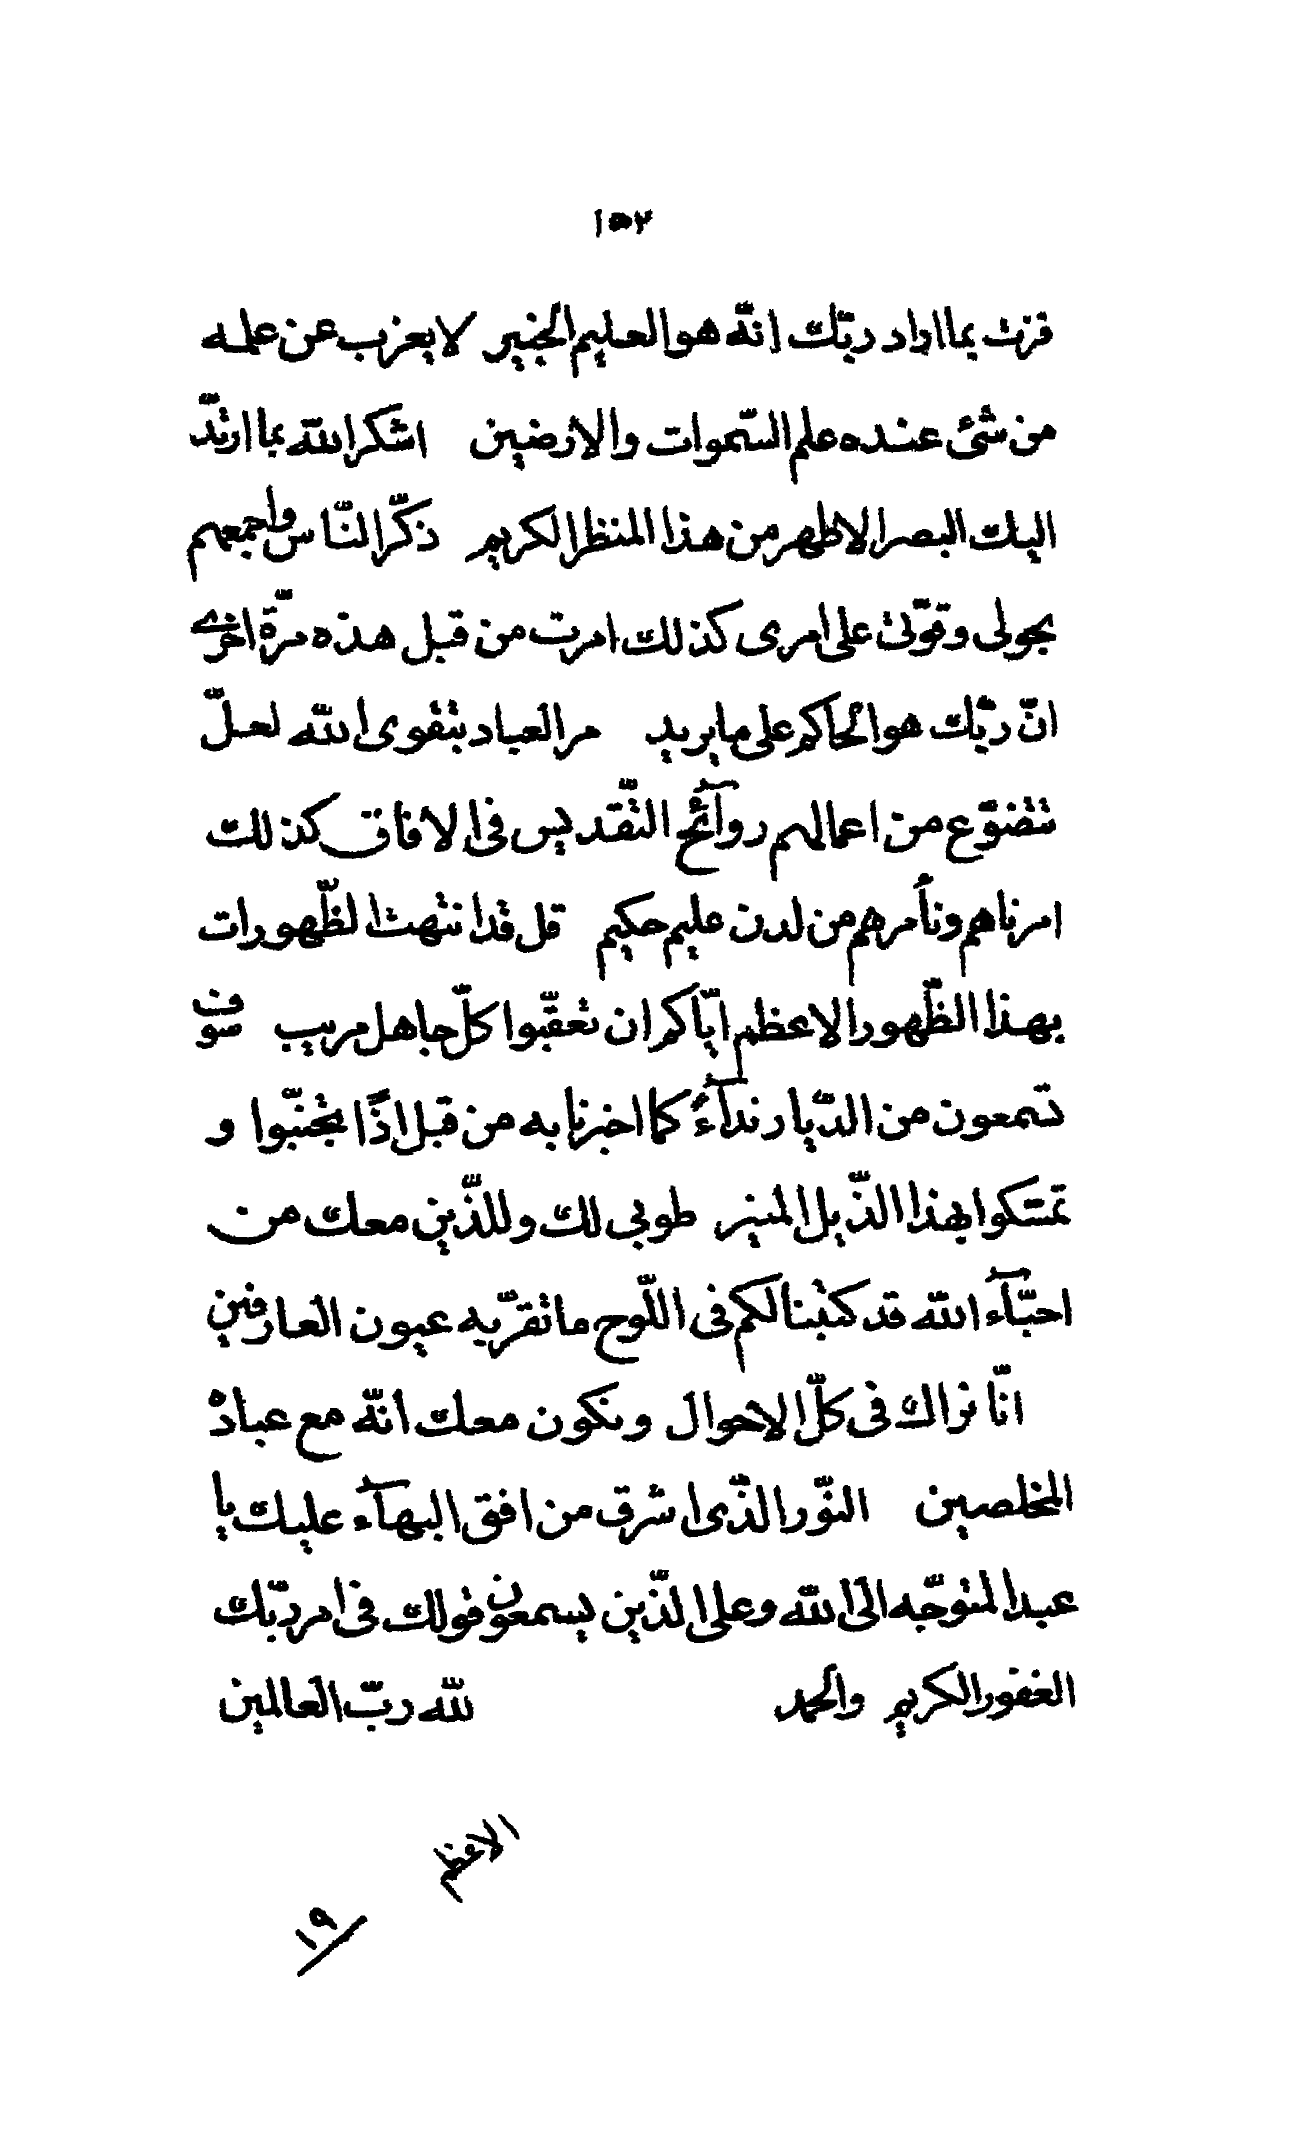 ١٥٢
فزت بما اراد ربّك انّه هو العليم الخبير لا يعزب عن علمه
من شئ عنده علم السّموات والارضين اشكر الله بما ارتدّ
اليك البصر الاطهر من هذا المنظر الكريم ذكّر النّاس واجمعهم
بحولى وقوّتى على امرى كذلك امرت من قبل هذه مرّة اخرى
انّ ربّك هو الحاكم على ما يريد مر العباد بتقوى الله لعلّ
تتضوّع من اعمالهم روآئح التّقديس فى الافاق كذلك
امرناهم ونأمرهم من لدن عليم حكيم قل قد انتهت الظّهورات
بهذا الظّهور الاعظم ايّاكم ان تعقّبوا كلّ جاهل مريب سوف
تسمعون من الدّيار ندآءً كما اخبرنا به من قبل اذًا تجنّبوا و
تمسّكوا بهذا الذّيل المنير طوبى لك وللّذين معك من
احبّآء الله قد كتبنا لكم فى اللّوح ما تقرّ به عيون العارفين
انّا نراك فى كلّ الاحوال ونكون معك انّه مع عباده
المخلصين النّور الّذى اشرق من افق البهآء عليك يا
عبد المتوجّه الى الله وعلى الّذين يسمعون قولك فى امر ربّك
الغفور الكريم والحمد لله ربّ العالمين
الاعظم
١٩